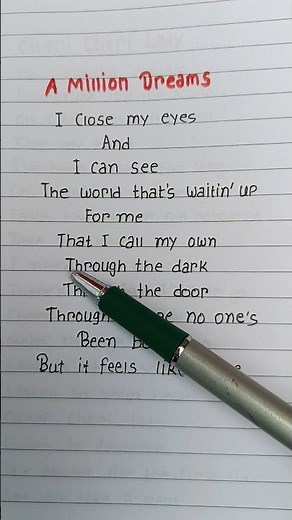 A Million Dreams
I close my eyes
And
I can see
The world that's waitin' up
For me
That I call my own
Through the dark
the door
Through no one's
Been
But it feels